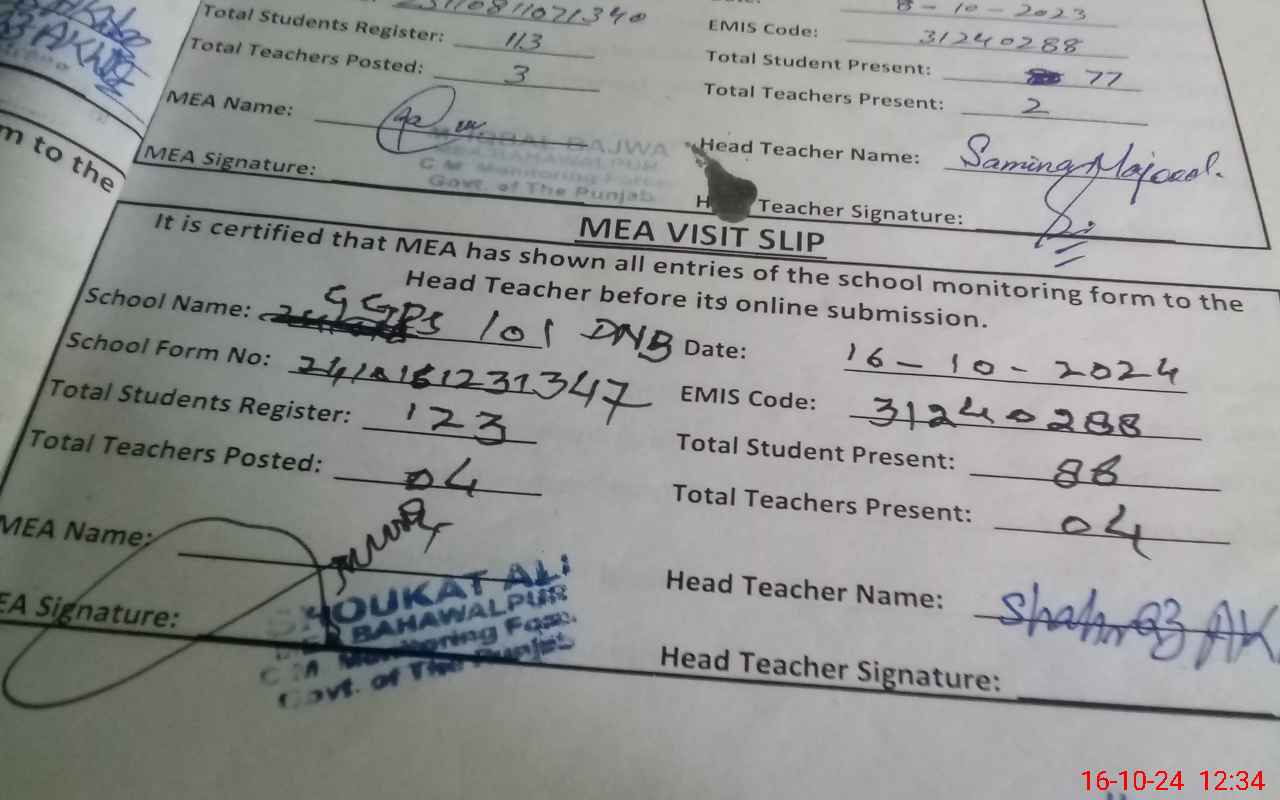 8-10-2023
Total Students Register: 113 EMIS Code: 31240288
Total Teachers Posted: 3 Total Student Present: 77
MEA Name: Total Teachers Present: 2
BAJWA
MEA Signature: Head Teacher Name: Samina
C M Monitoring Force
Govt. of The Punjab
Teacher Signature:
m to the
MEA VISIT SLIP
It is certified that MEA has shown all entries of the school monitoring form to the
Head Teacher before its online submission.
School Name: GGPS 101 DNB Date: 16-10-2024
School Form No: EMIS Code: 31240288
Total Students Register: 123 Total Student Present: 88
Total Teachers Posted: 04 Total Teachers Present: 04
MEA Name: Head Teacher Name:
SHOUKAT ALI
BAHAWALPUR
EA Signature: Head Teacher Signature:
C M Monitoring Force
Govt. of The Punjab
16-10-24 12:34